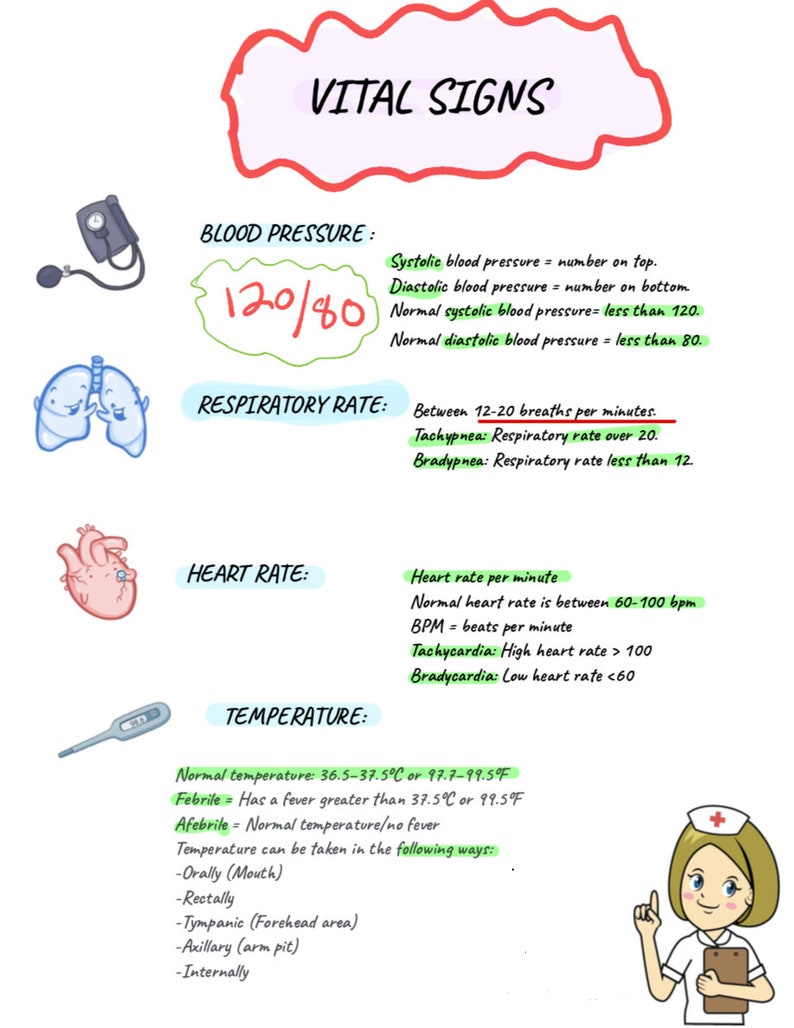 VITAL SIGNS
BLOOD PRESSURE :
120/80
Systolic blood pressure = number on top.
Diastolic blood pressure = number on bottom.
Normal systolic blood pressure= less than 120.
Normal diastolic blood pressure = less than 80.
RESPIRATORY RATE:
Between 12-20 breaths per minutes.
Tachypnea: Respiratory rate over 20.
Bradypnea: Respiratory rate less than 12.
HEART RATE:
Heart rate per minute
Normal heart rate is between 60-100 bpm
BPM = beats per minute
Tachycardia: High heart rate > 100
Bradycardia: Low heart rate <60
98.6
TEMPERATURE:
Normal temperature: 36.5–37.5ºC or 97.7–99.5ºF
Febrile = Has a fever greater than 37.5ºC or 99.5ºF
Afebrile = Normal temperature/no fever
Temperature can be taken in the following ways:
-Orally (Mouth)
-Rectally
-Tympanic (Forehead area)
-Axillary (arm pit)
-Internally